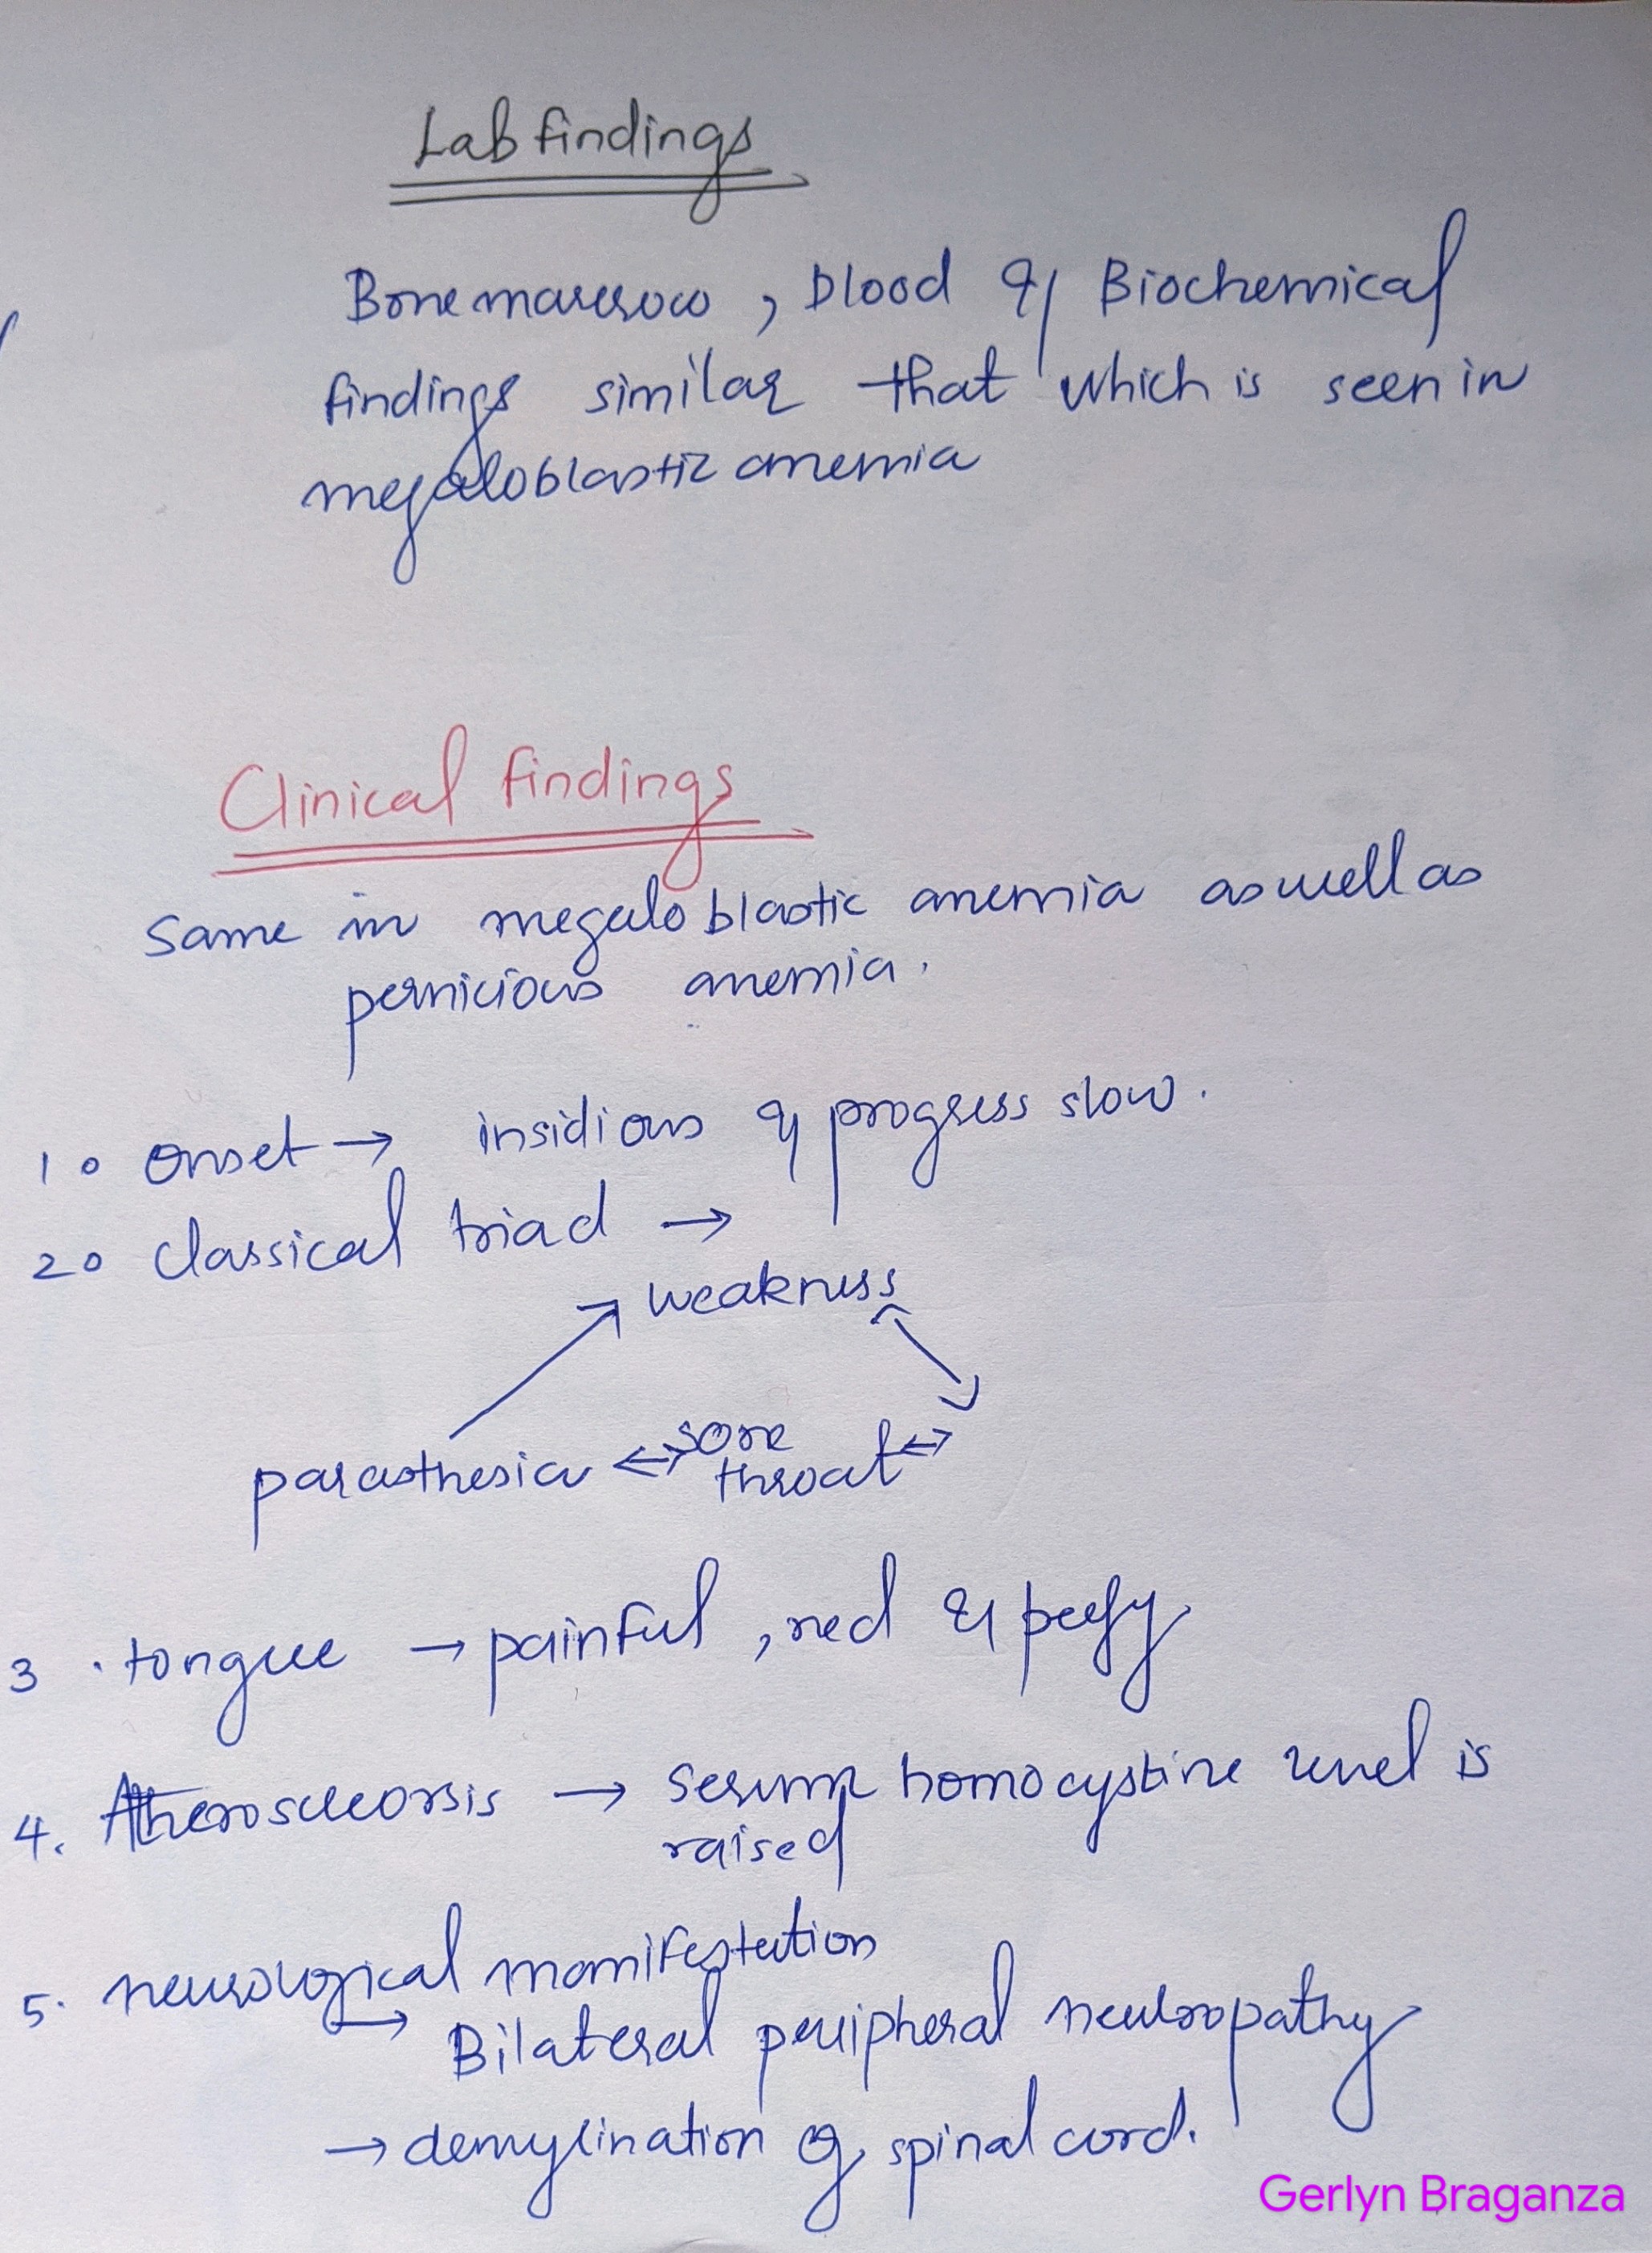 Lab findings
Bone marrow, blood & Biochemical
findings similar that which is seen in
megaloblastic anemia
Clinical findings
Same in megaloblastic anemia as well as
pernicious anemia.
1. Onset → insidious & progress slow.
2. Classical triad →
weakness
parasthesia ↔ sore
throat ↔
3. tongue → painful, red & peefy
4. Atheroscleorsis → Serum homocystine level is
raised
5. neurological manifestation
→ Bilateral peripheral neuropathy
→ demylination of spinal cord.
Gerlyn Braganza